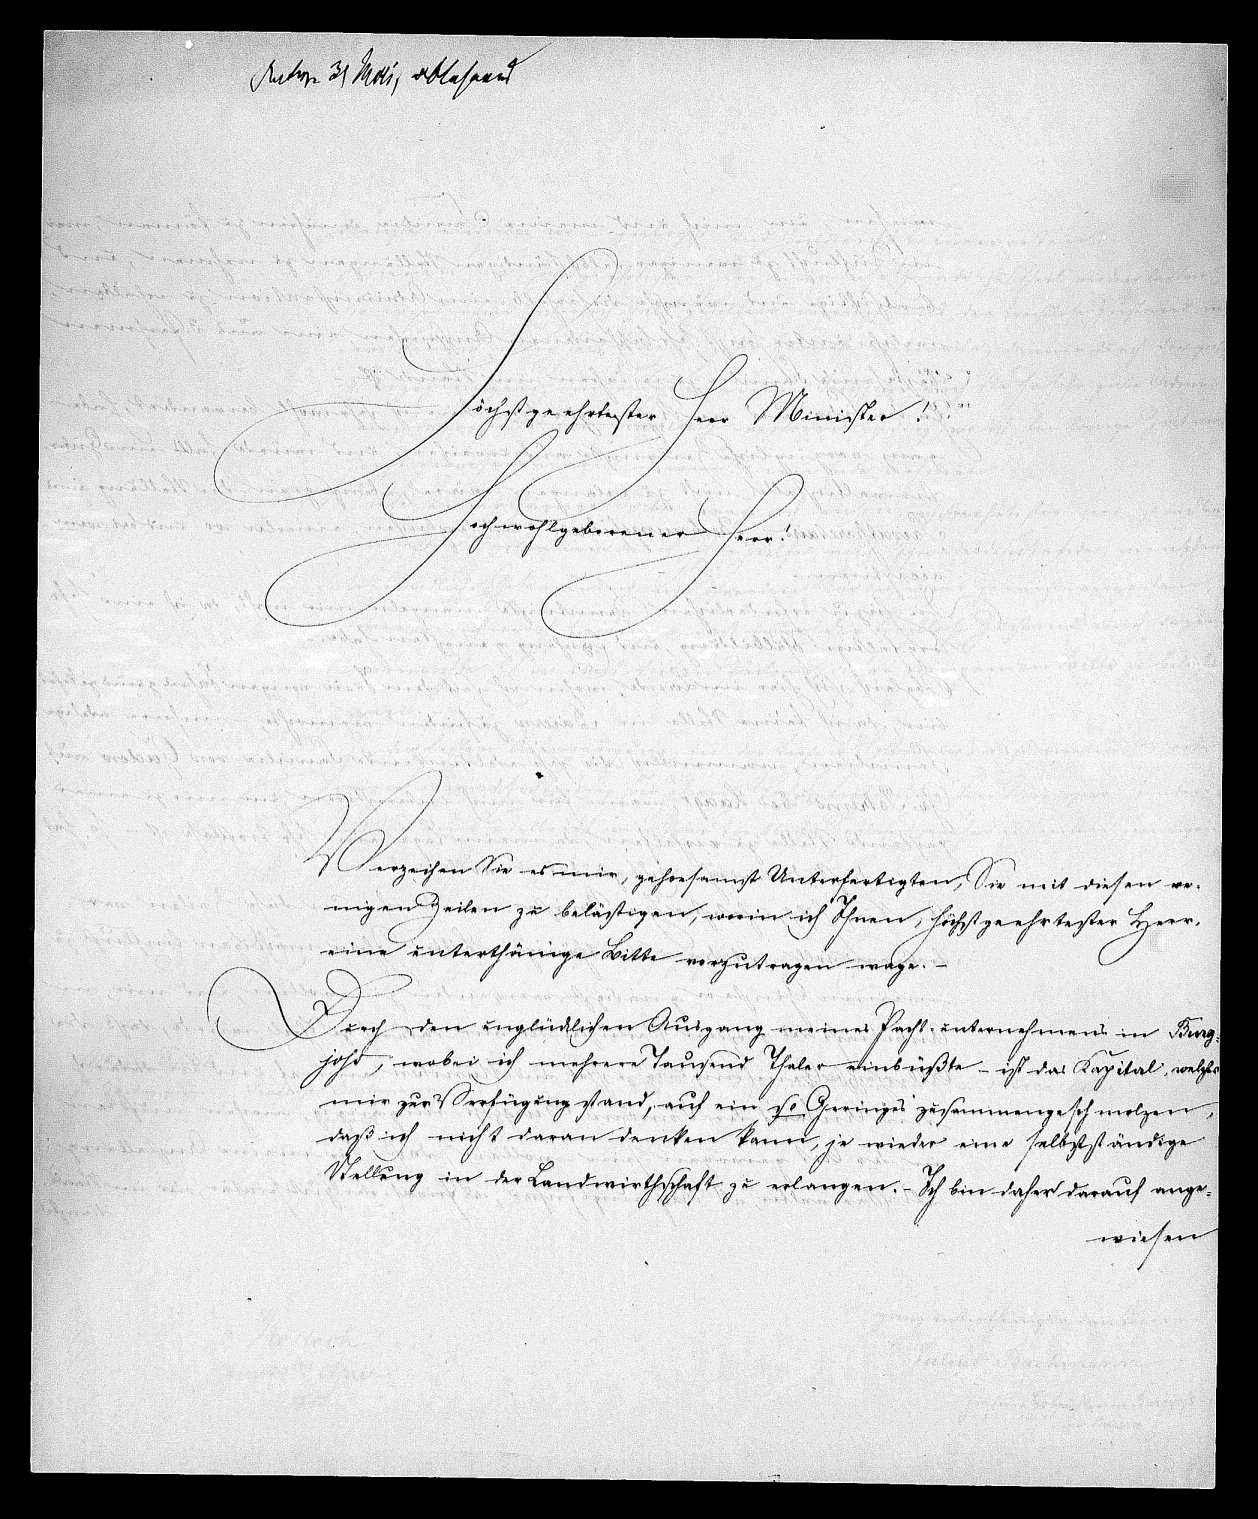 31 Mai, ablehnend
Höchstgeehrtester Herr Minister!
Hochwohlgeborener Herr!
Verzeihen Sie es mir, gehorsamst Unterfertigten, Sie mit diesen we-
nigen Zeilen zu belästigen, worin ich Ihnen, höchstgeehrtester Herr,
eine unterthänige Bitte vorzutragen wage. –
Durch den unglücklichen Ausgang meines Pacht-unternehmens in Burg-
johs, wobei ich mehrere Tausend Thaler einbüßte – ist das Kapital, welches
mir zur Verfügung stand, auf ein so Geringes zusammengeschmolzen,
daß ich nicht daran denken kann, je wieder eine selbstständige
Stellung in der Landwirthschaft zu erlangen. – Ich bin daher darauf ange-
wiesen